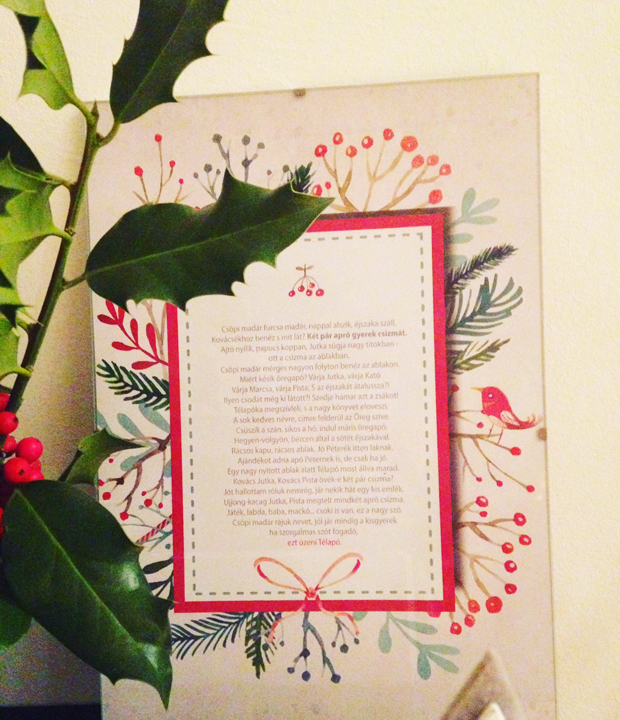 Csöpi madár furcsa madár, nappal alszik, éjszaka száll,
Kovácsékhoz benéz s mit lát? Két pár apró gyerek csizmát.
Ajtó nyílik, papucs koppan, Jutka súgja nagy titokban -
ott a csizma az ablakban.
Csöpi madár mérges nagyon folyton benéz az ablakon.
Miért késik öregapó? Várja Jutka, várja Kató
Várja Marcsa, várja Pista, S az éjszakát átalussza?!
Ilyen csodát még ki látott?! Szedje hamar azt a zsákot!
Télapóka megszívlelt, s a nagy könyvet
A sok kedves névre, címre felderül az Öreg szíve.
Csúszik a szán, síkos a hó, indul máris öregapó.
Hegyen-völgyön, bércen által a sötét éjszakával.
Rácsos kapu, rácsos ablak, Jó Péterék itten laknak.
Ajándékot adna apó Péternek is, de csak ha jó.
Egy nagy nyitott ablak alatt Télapó most állva marad.
Kovács Jutka, Kovács Pista övék-e két pár csizma?
Jót hallottam róluk nemrég, jár nekik hát egy kis emlék.
Ujjong-kacag Jutka, Pista megtelt mindkét apró csizma.
Játék, labda, baba, mackó... csoki is van, ez a nagy szó.
Csöpi madár rájuk nevet, jól jár mindig a kisgyerek
ha szorgalmas szót fogadó,
ezt üzeni Télapó.